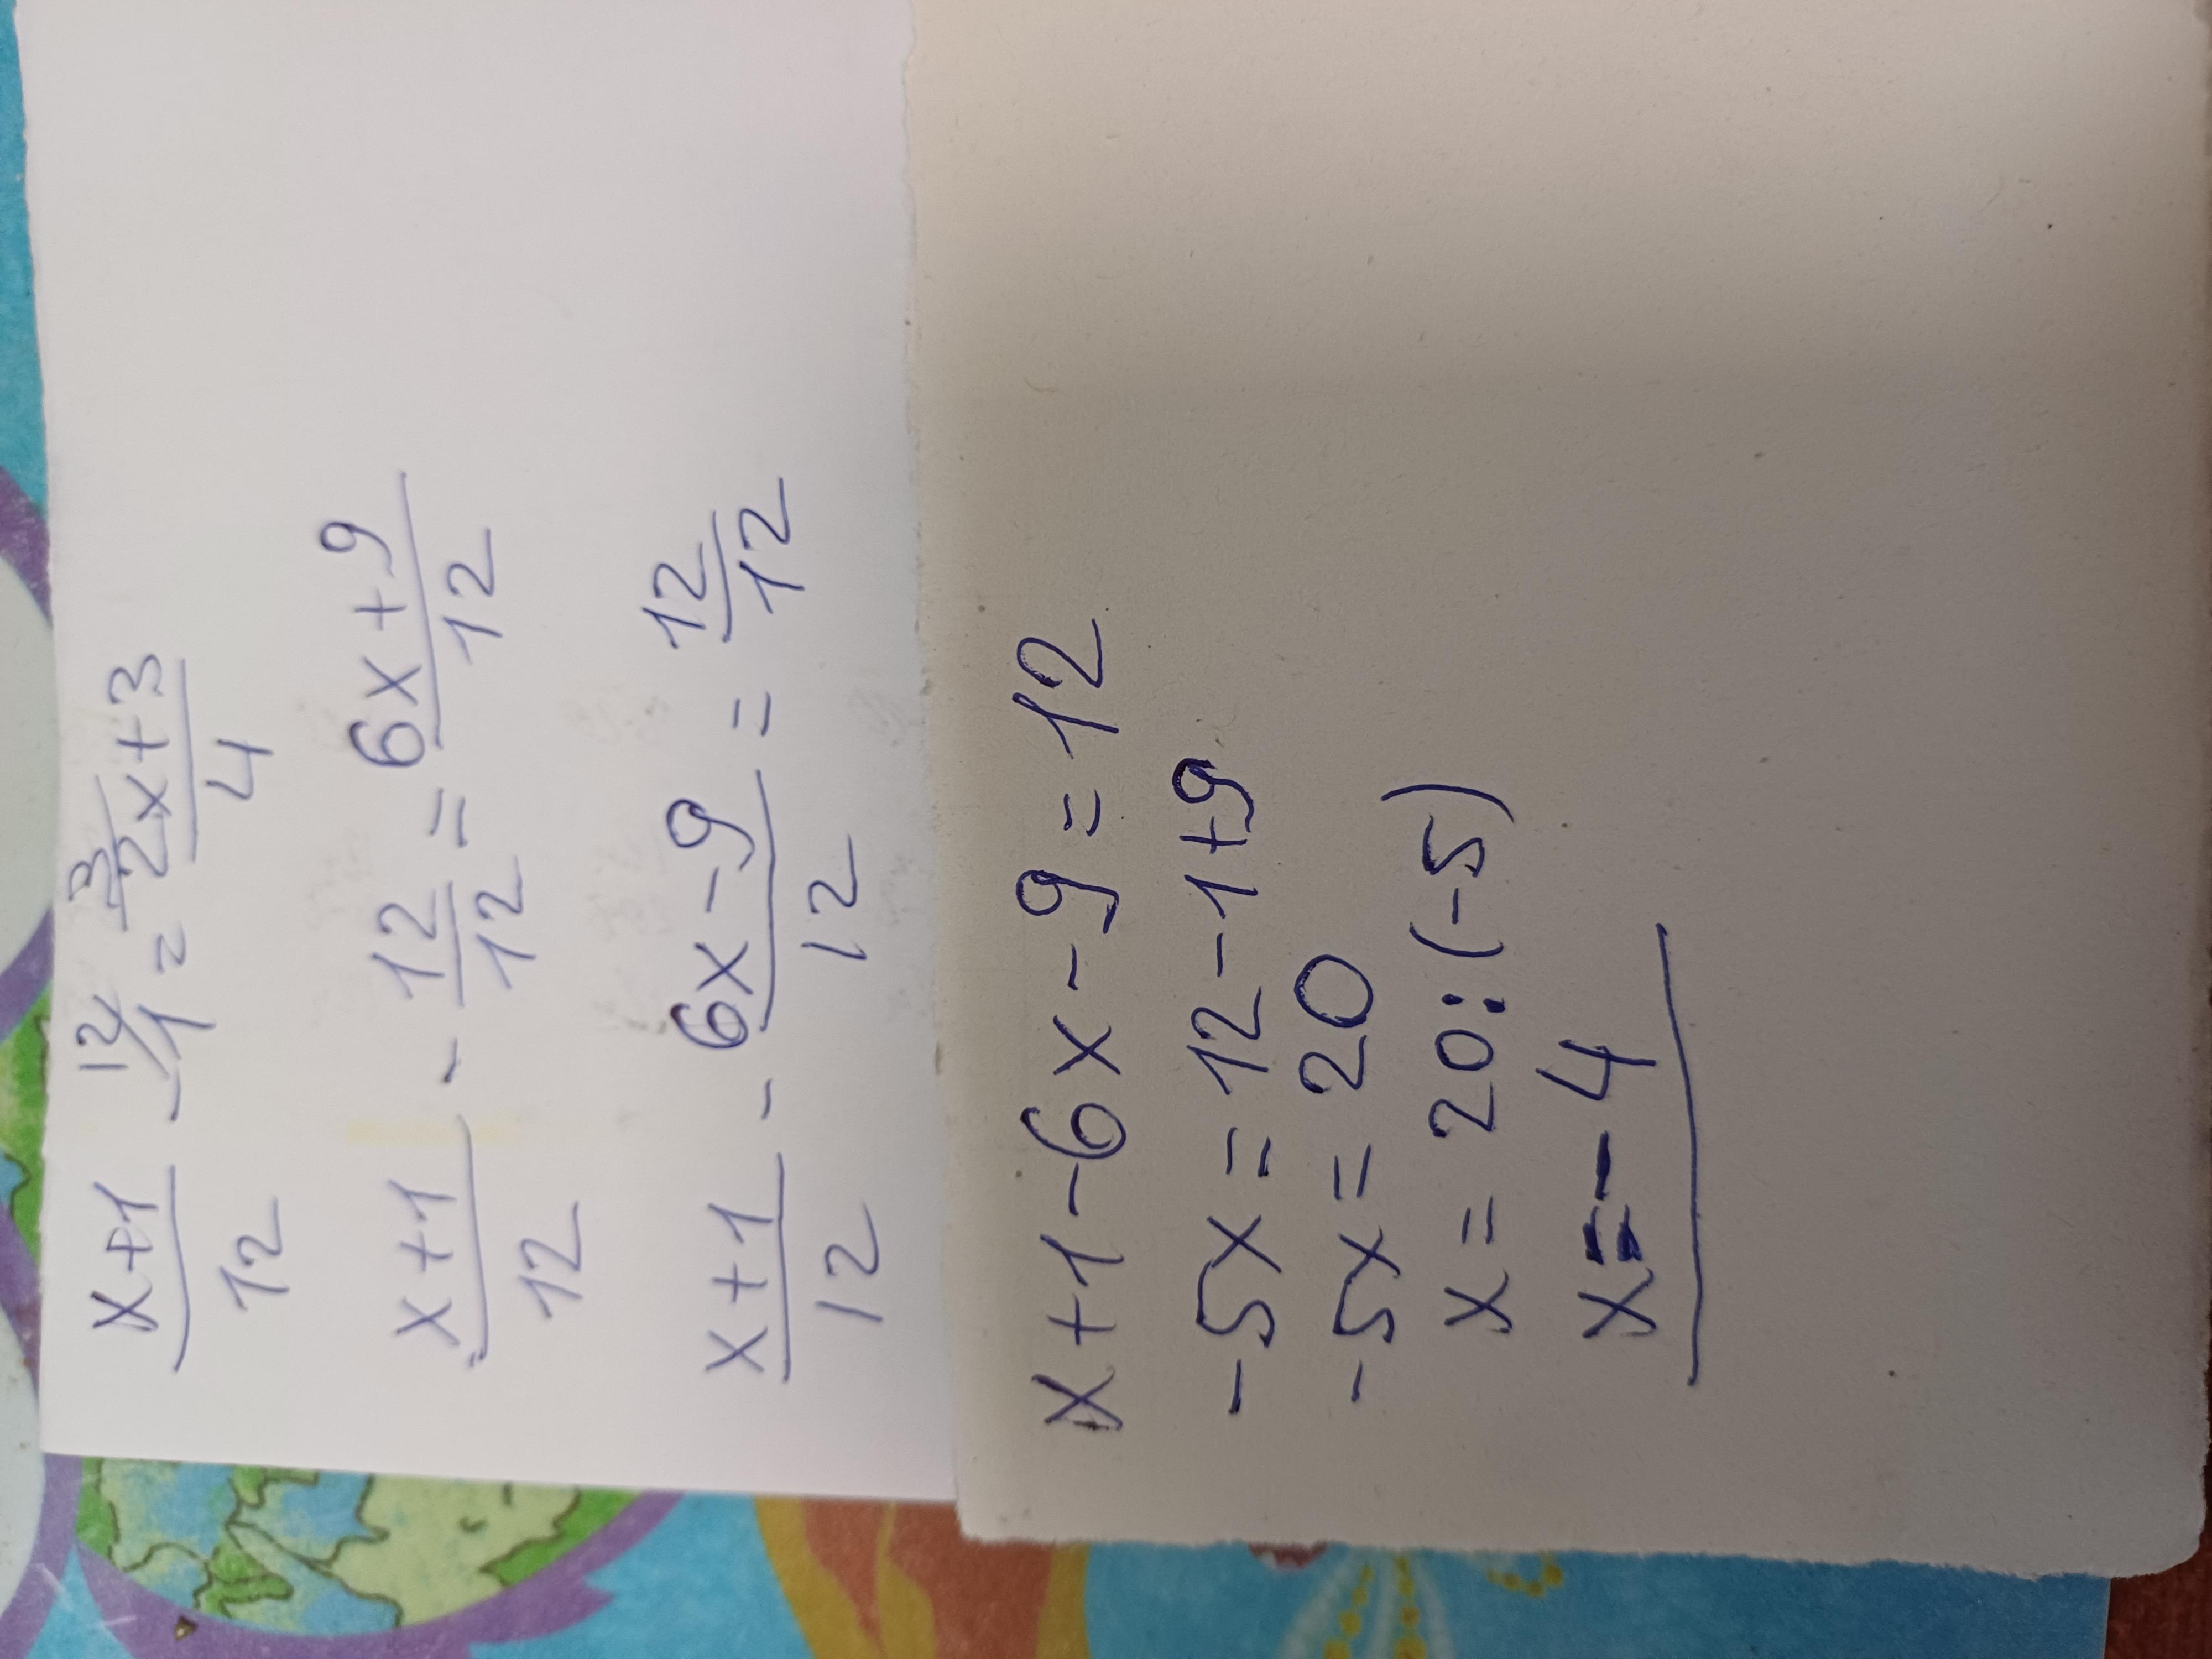 x+1/12 - 12/1 = 3/2x+3/4
x+1/12 - 12/12 = 6x+9/12
x+1/12 - 6x-9/12 = 12/12
x+1-6x-9=12
-5x=12-1+9
-5x=20
x=20:(-5)
x=-4